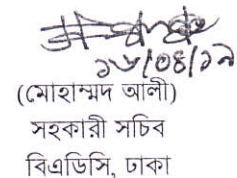 ১৬/০৪/১৯
(মোহাম্মদ আলী)
সহকারী সচিব
বিএডিসি, ঢাকা